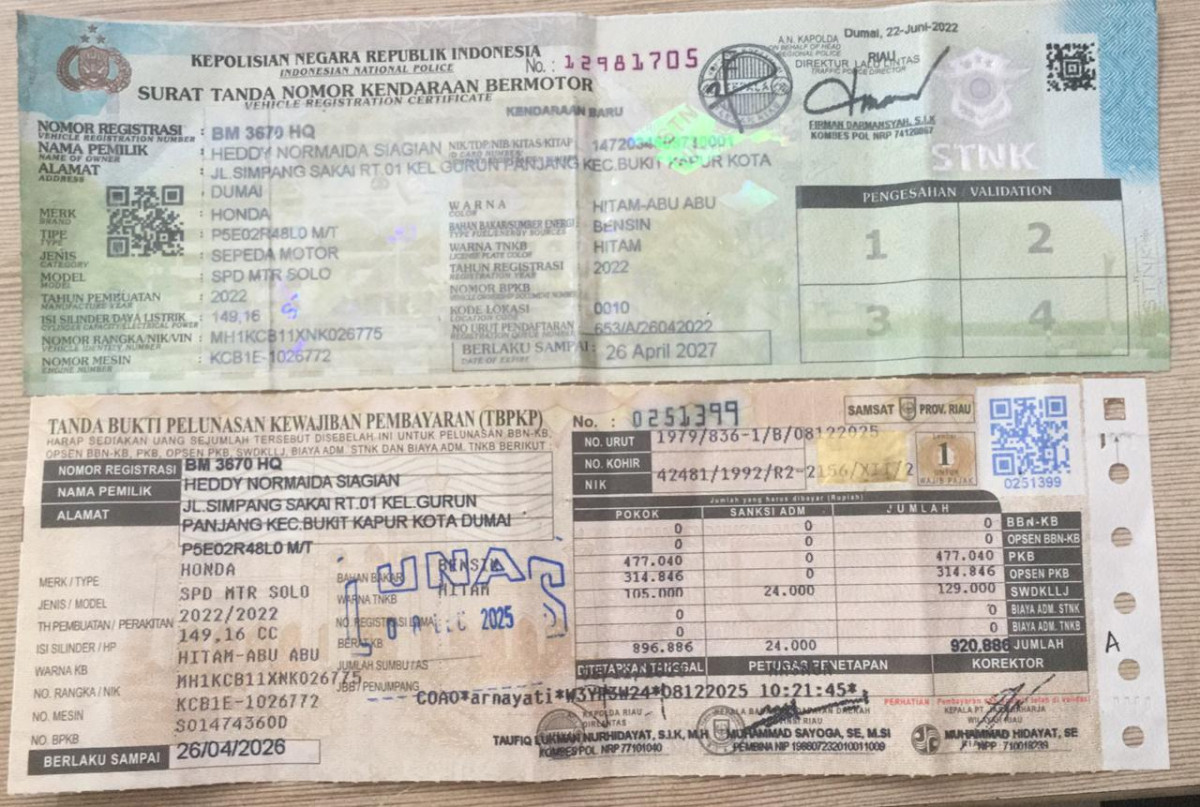 KEPOLISIAN NEGARA REPUBLIK INDONESIA
INDONESIAN NATIONAL POLICE
No. : 12981705
SURAT TANDA NOMOR KENDARAAN BERMOTOR
VEHICLE REGISTRATION CERTIFICATE
KENDARAAN BARU
Dumai, 22-Juni-2022
A.N. KAPOLDA
ON BEHALF OF HEAD
REGIONAL POLICE
RIAU
DIREKTUR LALU LINTAS
TRAFFIC POLICE DIRECTOR
FIRMAN DARMANSYAH, S.I.K
KOMBES POL NRP
STNK
NOMOR REGISTRASI : BM 3670 HQ
VEHICLE REGISTRATION NUMBER
NAMA PEMILIK : HEDDY NORMAIDA SIAGIAN
NAME OF OWNER
NIK/TDP/NIB/KITAS/KITAP :
ID CARD NUMBER
ALAMAT : JL.SIMPANG SAKAI RT.01 KEL GURUN PANJANG KEC.BUKIT KAPUR KOTA
ADDRESS
DUMAI
MERK : HONDA
BRAND
TIPE : P5E02R48L0 M/T
TYPE
JENIS : SEPEDA MOTOR
CATEGORY
MODEL : SPD MTR SOLO
MODEL
TAHUN PEMBUATAN : 2022
MANUFACTURE YEAR
ISI SILINDER/DAYA LISTRIK : 149,16
CYLINDER CAPACITY/ELECTRICAL POWER
NOMOR RANGKA/NIK/VIN : MH1KCB11XNK026775
VEHICLE IDENTITY NUMBER
NOMOR MESIN : KCB1E-1026772
ENGINE NUMBER
WARNA : HITAM-ABU ABU
COLOR
BAHAN BAKAR/SUMBER ENERGI : BENSIN
TYPE FUEL/ENERGY SOURCES
WARNA TNKB : HITAM
LICENSE PLATE COLOR
TAHUN REGISTRASI : 2022
REGISTRATION YEAR
NOMOR BPKB :
VEHICLE OWNERSHIP DOCUMENT NUMBER
KODE LOKASI : 0010
LOCATION CODE
NO URUT PENDAFTARAN : 653/A/26042022
REGISTRATION QUEUE NUMBER
BERLAKU SAMPAI : 26 April 2027
DATE OF EXPIRE
PENGESAHAN / VALIDATION
1 2
3 4
TANDA BUKTI PELUNASAN KEWAJIBAN PEMBAYARAN (TBPKP)
HARAP SEDIAKAN UANG SEJUMLAH TERSEBUT DISEBELAH INI UNTUK PELUNASAN BBN-KB,
OPSEN BBN-KB, PKB, OPSEN PKB, SWDKLLJ, BIAYA ADM. STNK DAN BIAYA ADM. TNKB BERIKUT :
NOMOR REGISTRASI BM 3670 HQ
NAMA PEMILIK HEDDY NORMAIDA SIAGIAN
ALAMAT JL.SIMPANG SAKAI RT.01 KEL.GURUN
PANJANG KEC.BUKIT KAPUR KOTA DUMAI
P5E02R48L0 M/T
MERK / TYPE HONDA
JENIS / MODEL SPD MTR SOLO
TH PEMBUATAN / PERAKITAN 2022/2022
ISI SILINDER / HP 149,16 CC
WARNA KB HITAM-ABU ABU
NO. RANGKA / NIK MH1KCB11XNK026775
NO. MESIN KCB1E-1026772
NO. BPKB S01474360D
BERLAKU SAMPAI 26/04/2026
BAHAN BAKAR BENSIN
WARNA TNKB HITAM
NO. REGISTRASI LAMA
BERAT KB
JUMLAH SUMBU / AS
JBB / PENUMPANG
LUNAS
DEC 2025
No. : 0251399
SAMSAT PROV. RIAU
NO. URUT 1979/836-1/B/08122025
NO. KOHIR 42481/1992/R2-2156/XII/2
NIK
Lembar
1
UNTUK
WAJIB PAJAK
0251399
Jumlah yang harus dibayar (Rupiah)
POKOK SANKSI ADM JUMLAH
0 0 0 BBN-KB
0 0 0 OPSEN BBN-KB
477.040 0 477.040 PKB
314.846 0 314.846 OPSEN PKB
105.000 24.000 129.000 SWDKLLJ
0 0 0 BIAYA ADM. STNK
0 0 0 BIAYA ADM. TNKB
896.886 24.000 920.886 JUMLAH
DITETAPKAN TANGGAL PETUGAS PENETAPAN KOREKTOR
COAO*arnayati*W3YH3W24*08122025 10:21:45*
PERHATIAN :
KAPOLDA RIAU
DIRLANTAS
TAUFIQ LUKMAN NURHIDAYAT, S.I.K, M.H
KOMBES POL NRP 77101040
KEPALA BADAN PENDAPATAN DAERAH
PROVINSI RIAU
MUHAMMAD SAYOGA, SE, M.SI
PEMBINA NIP 198607232010011009
KEPALA PT. JASA RAHARJA
WILAYAH RIAU
MUHAMMAD HIDAYAT, SE
NPP 710018239
A